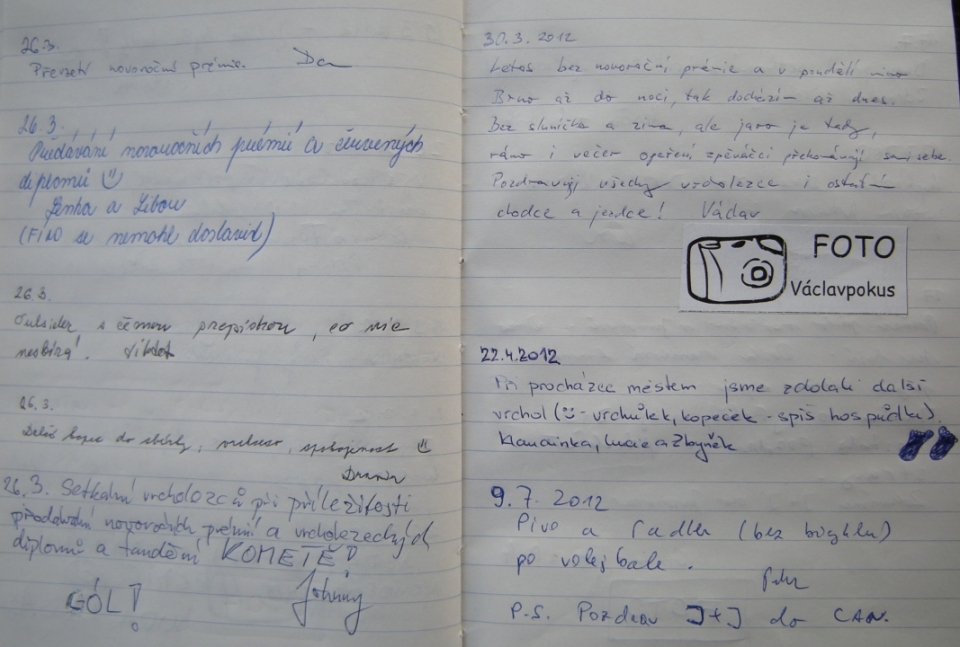 26.3.
Převzetí novoroční prémie. Dan
26.3.
Předávání novoročních prémií a červených
diplomů
Lenka a Libou
(FÍRO se nemohl dostavit)
26.3.
Outsider s černou propiskou, co nic
nesbírá! Viktor
26.3.
Další kopec do sbírky, spokojenost
26.3. Setkání vrcholozců při příležitosti
předávání novoročních prémií a vrcholezeckých
diplomů a fandění KOMETĚ!
GÓL! Johnny
30.3.2012
Letos bez novoroční prémie a v pondělí mimo
Brno až do noci, tak docházím až dnes.
Bez sluníčka a zima, ale jaro je tady,
ráno i večer opeření zpěváčci překonávají sami sebe.
Pozdravuji všechny vrcholezce i ostatní
chodce a jezdce! Václav
FOTO
Václavpokus
22.4.2012
Při procházce městem jsme zdolali další
vrchol (- vrchůlek, kopeček - spíš hospůdku).
Klaudinka, Lucie a Zbyněk
9.7. 2012
Pivo a radler (bez )
po volejbale.
Petr
P.S. Pozdrav J+J do CAN.